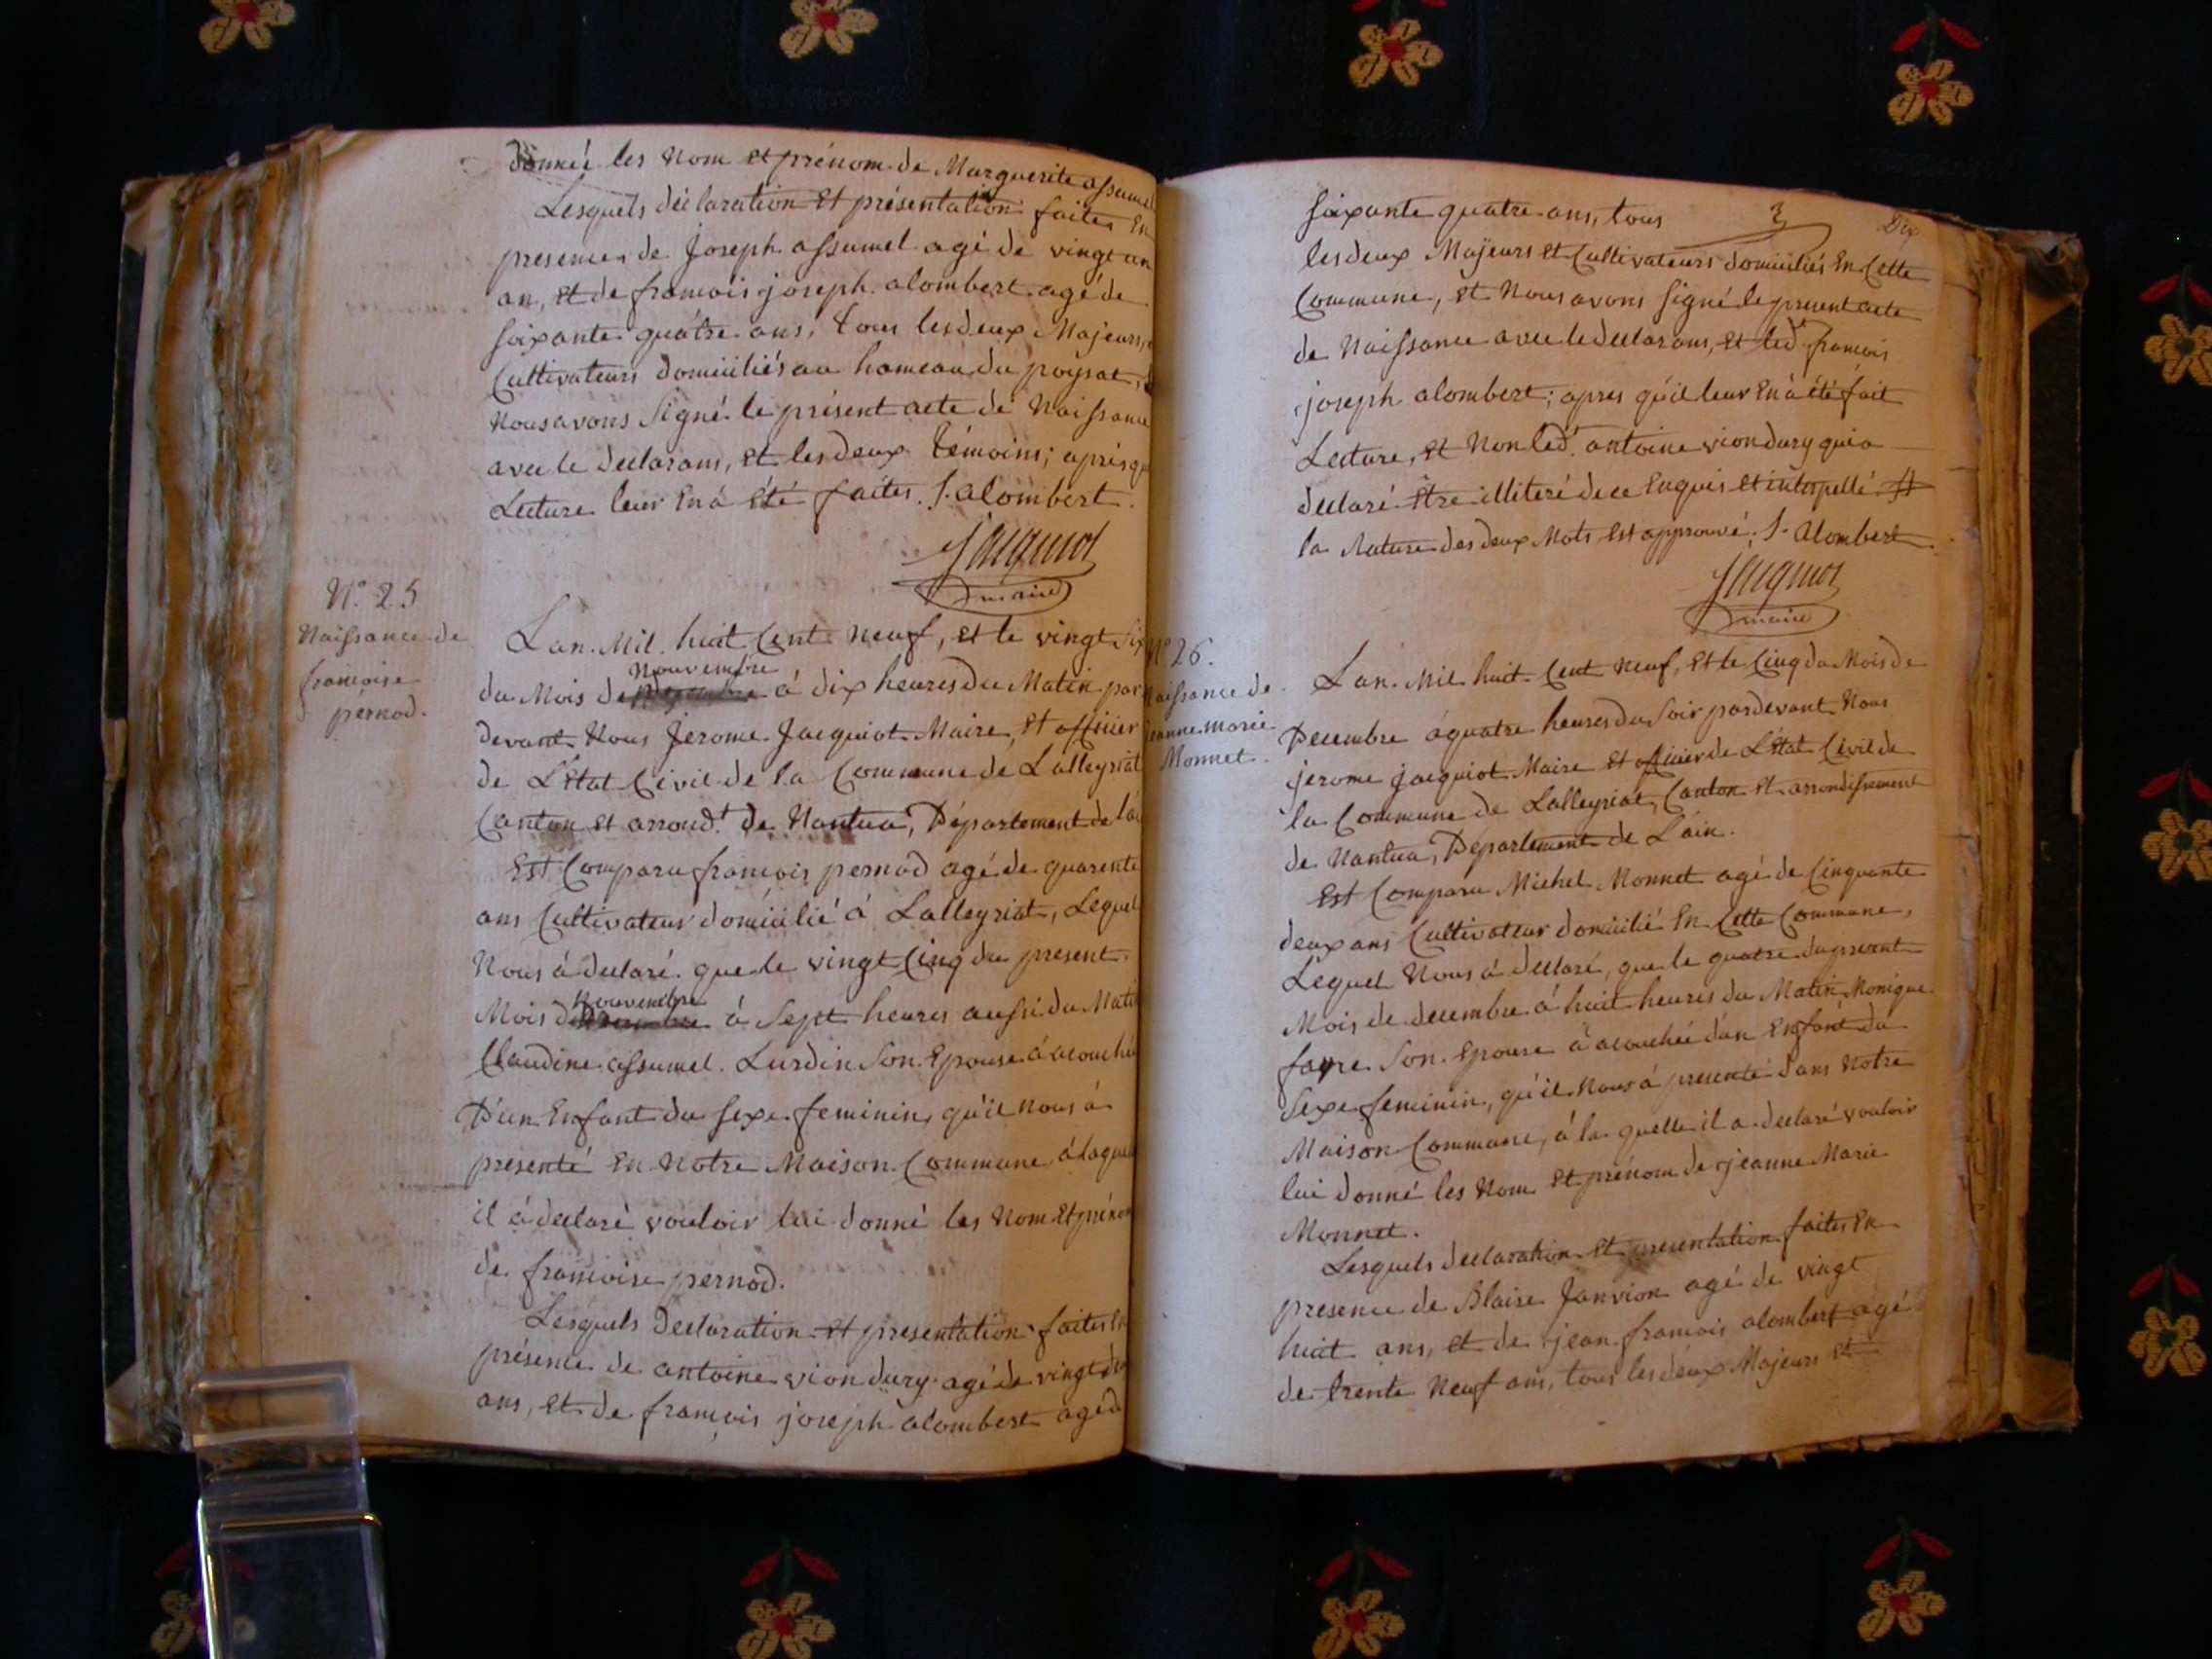 donnée les Nom et prénom de Marguerite assumel
Lesquels déclaration et présentation faites En
presence de Joseph assumel agé de vingt un
an, et de francois joseph alombert agé de
soixante quatre ans, tous les deux Majeurs,
Cultivateurs domiciliés au hameau du poysat,
Nous avons Signé le présent acte de Naissance
avec le declarans, et les deux témoins; après que
Lecture leur En à été faites. J. alombert.
Jacquiot
maire
N.º 25
Naissance de
francoise
pernod.
Lan Mil huit Cent Neuf, et le vingt Six
Nouvembre
du Mois de à dix heures du Matin par
devant Nous Jerome Jacquiot Maire, et officier
de L'Etat Civil de la Commune de Lalleyriat
Canton et arrond.t de Nantua, Département de l'ain
Est Comparu francois pernod agé de quarente
ans Cultivateur domicilié à Lalleyriat, Lequel
Nous à declaré que le vingt Cinq du present
Nouvembre
Mois de à Sept heures aussi du Matin
Claudine assumel Lurdin Son Epouse à acouchée
D'un Enfant du sexe feminin, qu'il nous à
presenté En Notre Maison Commune à laquelle
il à declaré vouloir lui donné les Nom et prénom
de francoise pernod.
Lesquels declaration et presentation faites En
présence de antoine vion dury agé de vingt
ans, et de françois joseph alombert agé de
Dix
soixante quatre ans, tous
les deux Majeurs et Cultivateurs domiciliés En Cette
Commune, et Nous avons signé le present acte
de Naissance avec le declarans, et led.t francois
joseph alombert; apres qu'il leur En à été fait
Lecture, et Non led.t antoine vion dury qui a
declaré Etre illiteré de ce Enquis et interpellé.
la Nature des deux Mots est approuvé. J. Alombert
Jacquiot
maire
Nº 26.
Naissance de
Jeanne marie
Monnet.
Lan Mil huit Cent Neuf, et le Cinq du Mois de
Decembre à quatre heures du Soir pardevant Nous
jerome jacquiot Maire et officier de L'Etat Civil de
la Commune de Lalleyriat, Canton et arrondissement
de Nantua, Département de L'ain.
Est Comparu Michel Monnet agé de Cinquante
deux ans Cultivateur domicilié En Cette Commune,
Lequel Nous à declaré, que le quatre du present
Mois de decembre à huit heures du Matin Monique
favre Son Epouse à acouchée d'un Enfant du
Sexe feminin, qu'il Nous à presenté dans Notre
Maison Commune, à la quelle il a declaré vouloir
lui donné les Nom et prénom de jeanne Marie
Monnet.
Lesquels declaration et presentation faites En
presence de Blaise Janvion agé de vingt
huit ans, et de jean francois alombert agé
de trente Neuf ans, tous les deux Majeurs et